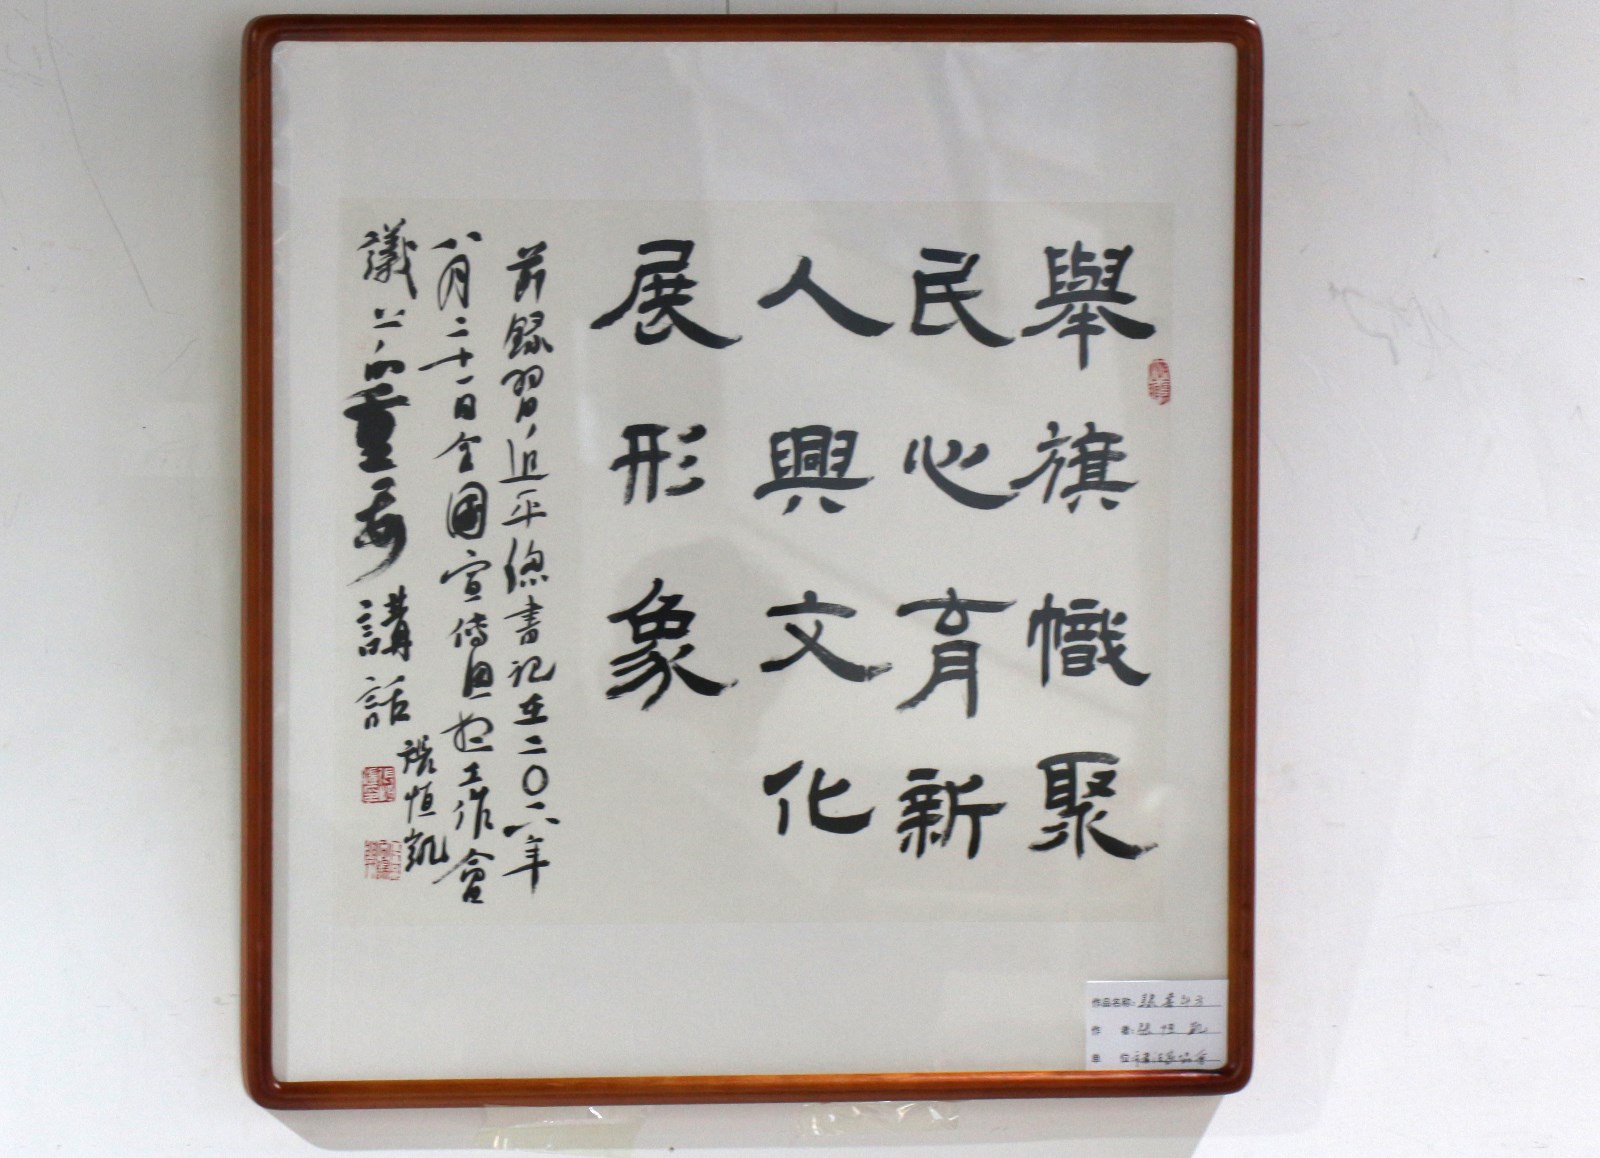 舉旗幟聚
民心育新
人興文化
展形象
節錄習近平總書記在二〇一八年
八月二十一日全國宣傳思想工作會
議上的重要講話
張恒凱
作品名称：隸書斗方
作者：張恒凱
单位：